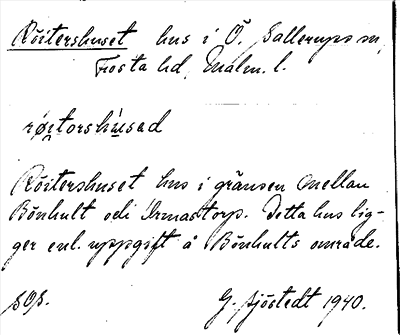 Röstershuset hus i Ö. Sallerups sn,
Frosta hd, Malm. l.
røstorshúsəd
Röstershuset hus i gränsen mellan
Bönhult och Ormastorp. Detta hus lig-
ger enl. uppgift å Bönhults område.
G. Sjöstedt 1940.